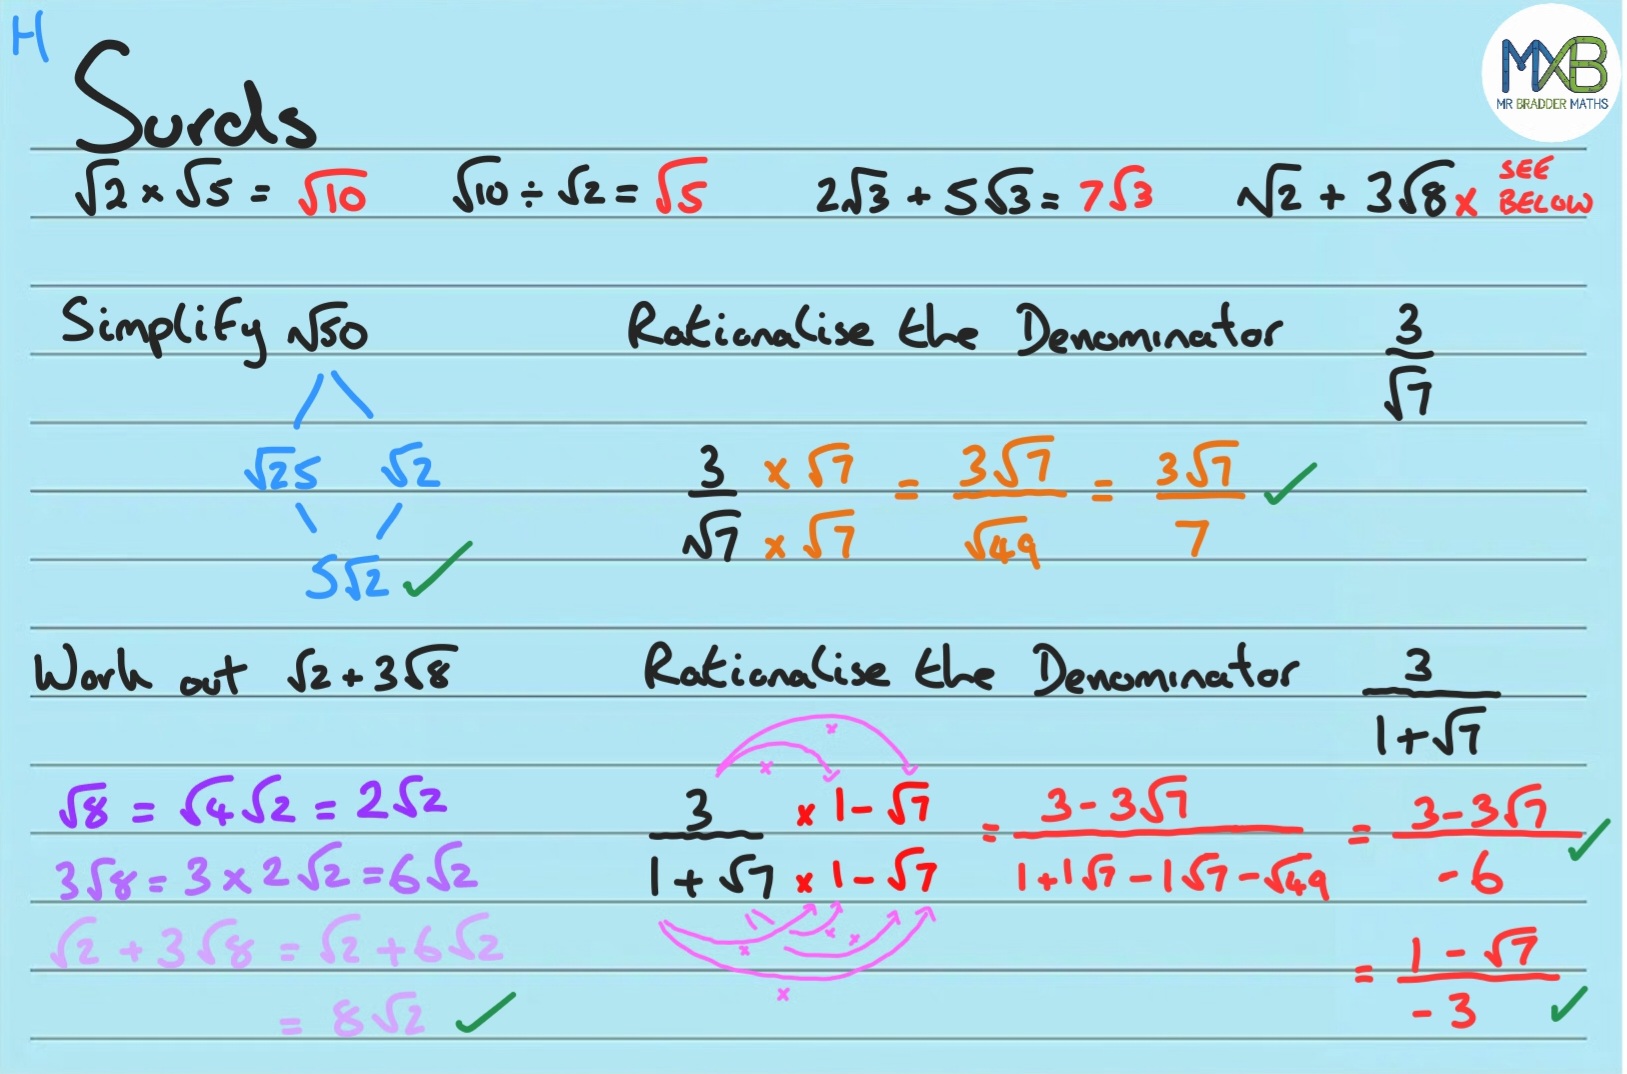 H
Surds
MXB
MR BRADDER MATHS
√2 × √5 = √10
√10 ÷ √2 = √5
2√3 + 5√3 = 7√3
√2 + 3√8 × SEE BELOW
Simplify √50
√25 √2
5√2 ✓
Rationalise the Denominator 3/√7
3/√7 × √7/√7 = 3√7/√49 = 3√7/7 ✓
Work out √2 + 3√8
√8 = √4√2 = 2√2
3√8 = 3 × 2√2 = 6√2
√2 + 3√8 = √2 + 6√2
= 8√2 ✓
Rationalise the Denominator 3/(1+√7)
× ×
3/(1+√7) × (1-√7)/(1-√7) = (3-3√7)/(1+1√7-1√7-√49) = (3-3√7)/-6 ✓
× × × ×
= (1-√7)/-3 ✓